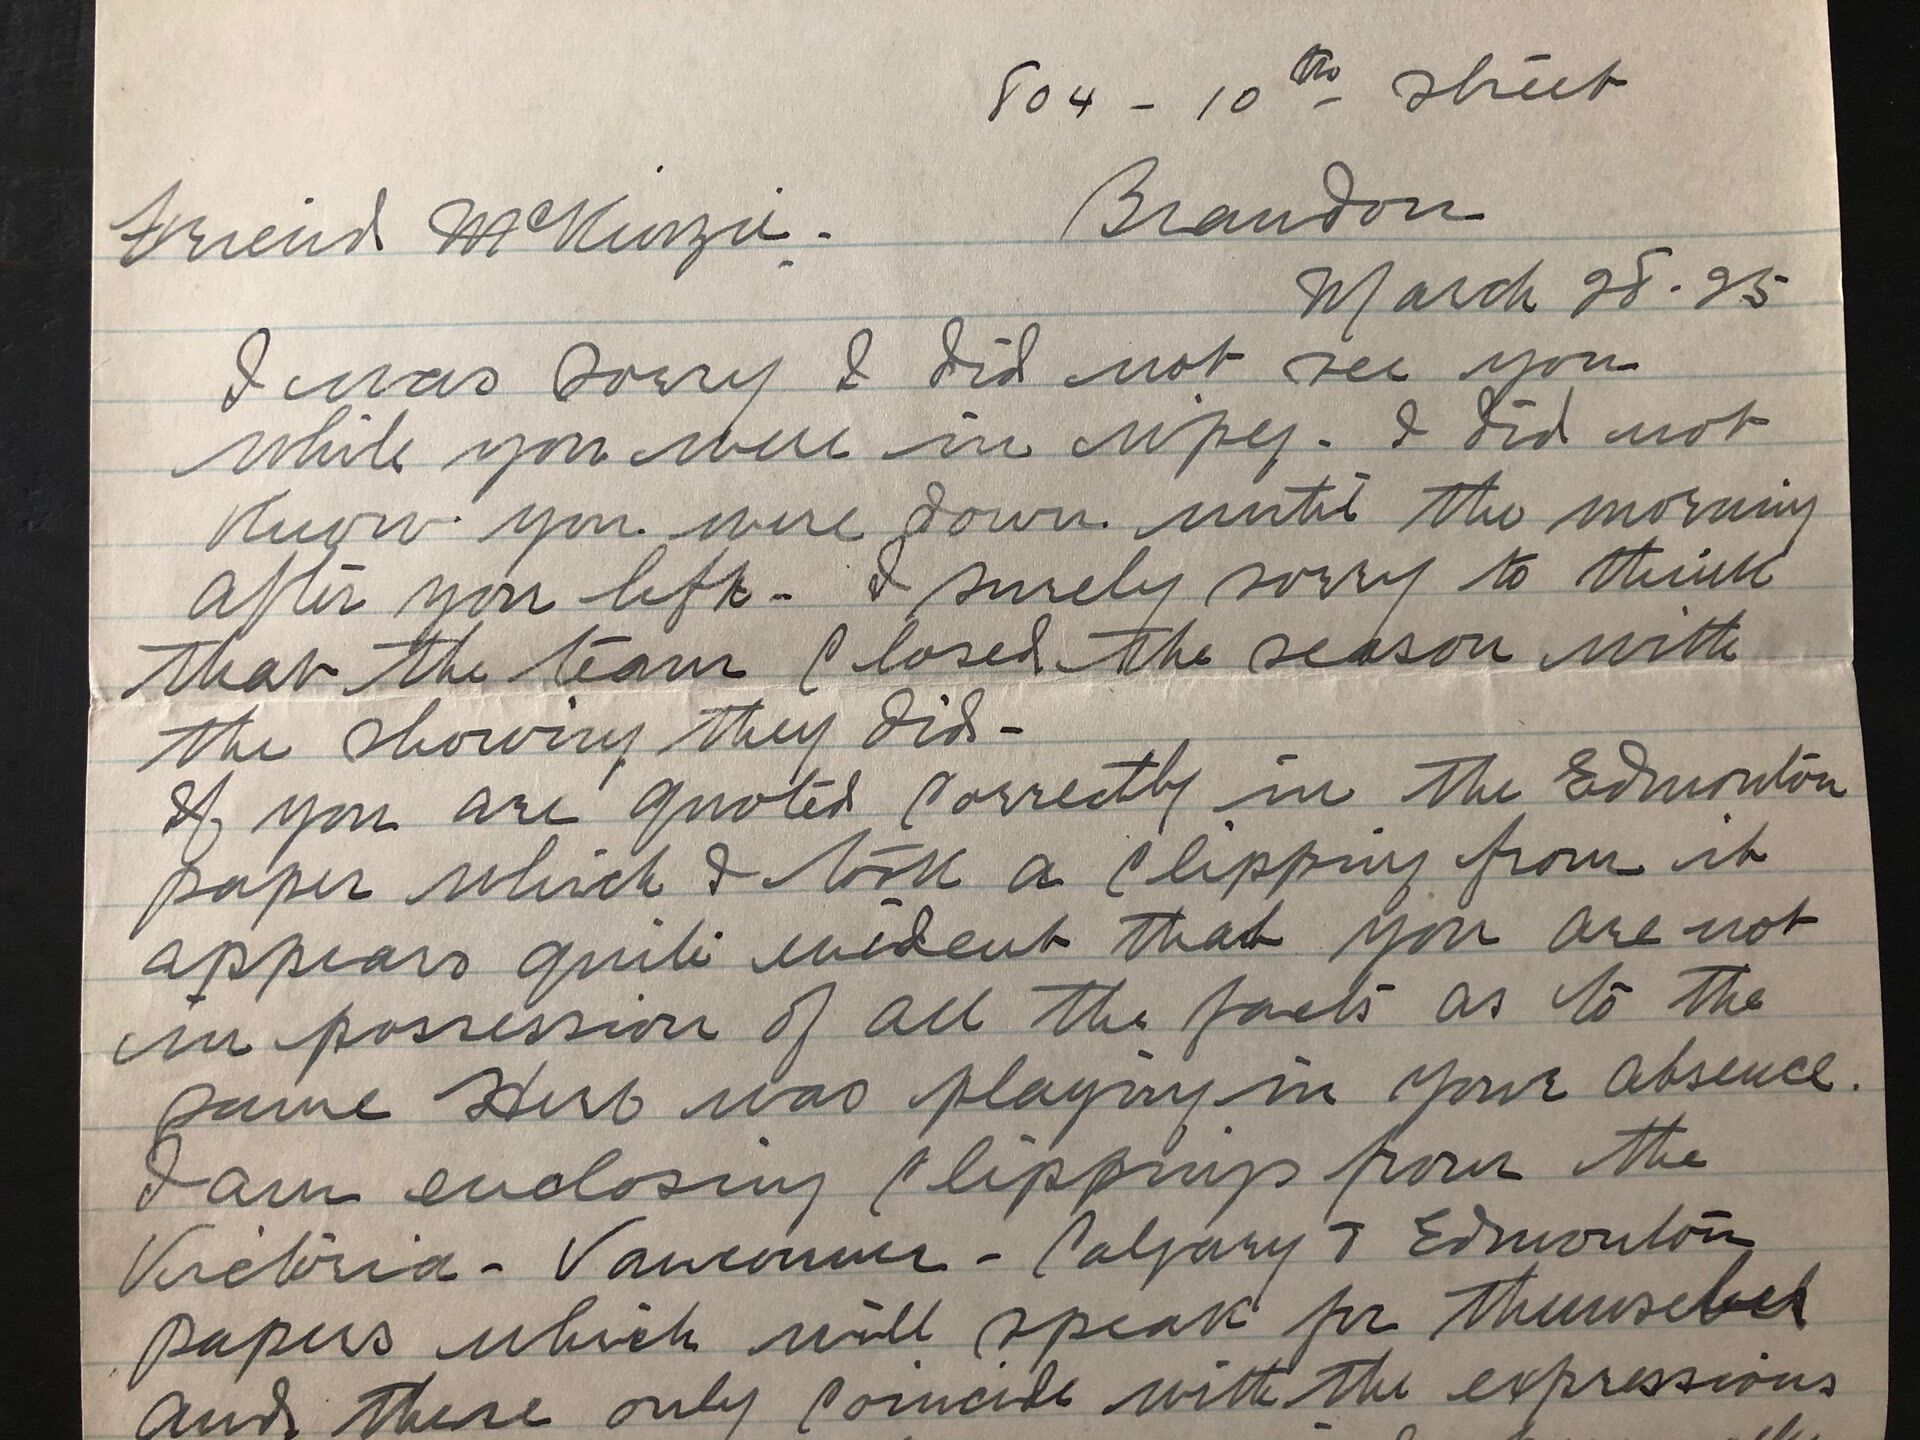 804 - 10th street
Brandon
Friend McKinzie.
March 28.25
I was sorry I did not see you
while you were in wipeg. I did not
know you were down until the morning
after you left - I surely sorry to think
that the team closed the season with
the showing they did -
If you are quoted correctly in the Edmonton
paper which I took a clipping from it
appears quite evident that you are not
in possession of all the facts as to the
game Herb was playing in your absence.
I am enclosing clippings from the
Victoria - Vancouver - Calgary & Edmonton
papers which will speak for themselves
and these only coincide with the expressions